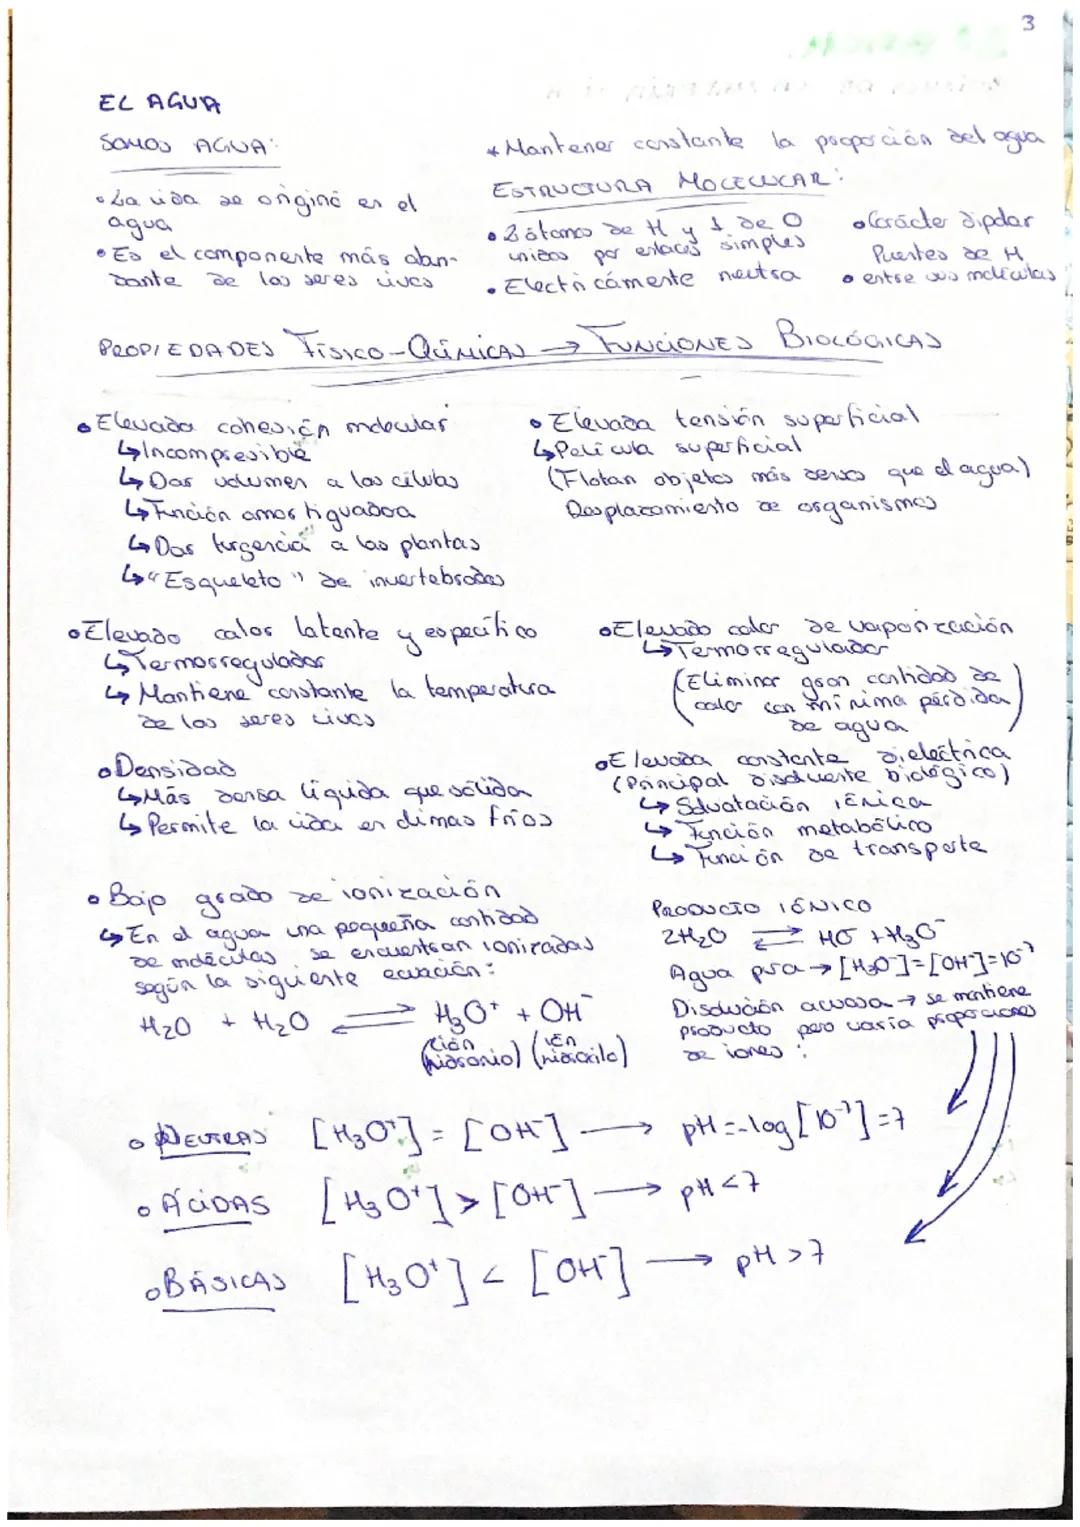 3
EL AGUA
SOMOS AGUA:
• La vida se originó en el
agua
• Es el componente más abun-
dante de los seres vivos
* Mantener constante la proporción del agua
ESTRUCTURA MOLECULAR:
• 2 átomos de H y 1 de O
unidos por enlaces simples
• Electricámente neutra
• Carácter dipolar
Puentes de H
• entre sus moléculas
PROPIEDADES FÍSICO-QUÍMICAS → FUNCIONES BIOLÓGICAS
• Elevada cohesión molecular
↳ Incompresible
↳ Dar volumen a las células
↳ Función amortiguadora
↳ Dar turgencia a las plantas
↳ "Esqueleto" de invertebrados
• Elevada tensión superficial
↳ Película superficial
(Flotan objetos más densos que el agua)
Desplazamiento de organismos
• Elevado calor latente y específico
↳ Termorregulador
↳ Mantiene constante la temperatura
de los seres vivos
• Elevado calor de vaporización
↳ Termorregulador
(Eliminar gran cantidad de
calor con mínima pérdida
de agua)
• Densidad
↳ Más densa líquida que sólida
↳ Permite la vida en climas fríos
• Elevada constante dieléctrica
(Principal disolvente biológico)
↳ Solvatación iónica
↳ Función metabólico
↳ Función de transporte
• Bajo grado de ionización
↳ En el agua una pequeña cantidad
de moléculas se encuentran ionizadas
según la siguiente ecuación:
H₂O + H₂O ⇌ H₃O⁺ + OH⁻
(ión hidronio) (ión hidroxilo)
PRODUCTO IÓNICO
2H₂O ⇌ HO⁻ + H₃O⁻
Agua pura → [H₃O⁺] = [OH⁻] = 10⁻⁷
Disolución acuosa → se mantiene
producto pero varía proporciones
de iones:
• NEUTRAS [H₃O⁺] = [OH⁻] → pH = -log [10⁻⁷] = 7
• ÁCIDAS [H₃O⁺] > [OH⁻] → pH < 7
• BÁSICAS [H₃O⁺] < [OH⁻] → pH > 7